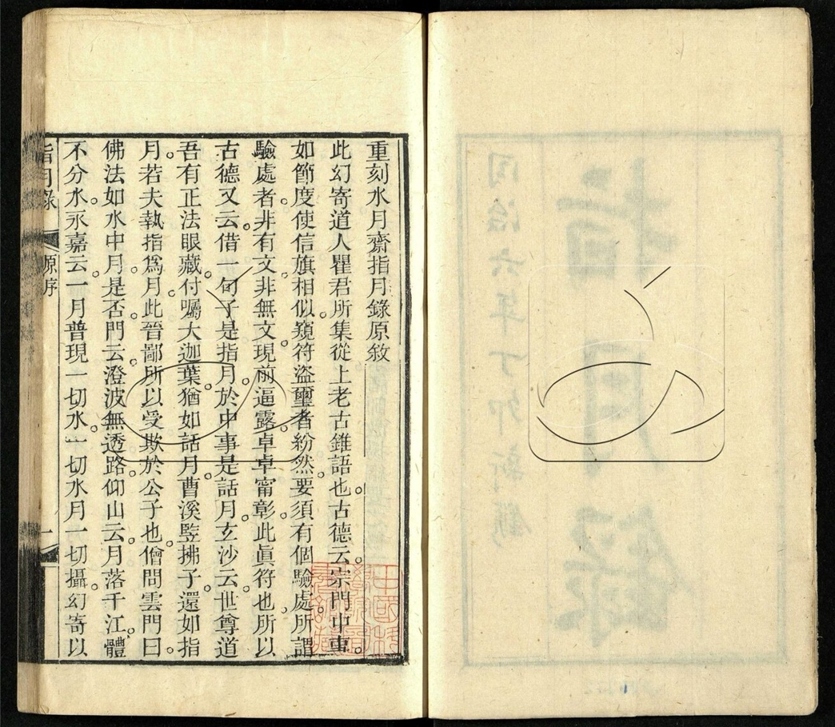 指月錄
同治六年丁卯新鐫
重刻水月齋指月錄原敘
此幻寄道人瞿君所集從上老古錐語也。古德云宗門中事。
如節度使信旗相似。竊符盜璽者紛然。要須有個驗處。所謂
驗處者。非有文非無文。現前逼露卓卓甯彰。此眞符也。所以
古德又云。借一句子是指月。於中事是話月。玄沙云。世尊道
吾有正法眼藏付囑大迦葉。猶如話月。曹溪豎拂子。還如指
月。若夫執指爲月。此晉鄙所以受欺於公子也。僧問雲門曰。
佛法如水中月是否。門云。澄波無透路。仰山云。月落千江體
不分水。永嘉云。一月普現一切水。一切水月一切攝。幻寄以
指月錄 原序 一